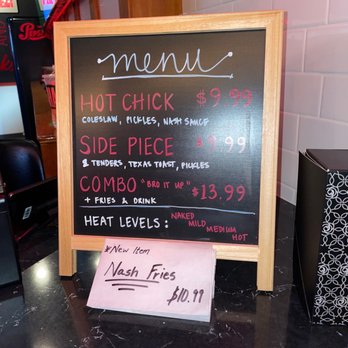 menu
HOT CHICK $9.99
COLESLAW, PICKLES, NASH SAUCE
SIDE PIECE .99
2 TENDERS, TEXAS TOAST, PICKLES
COMBO "BRO IT UP" $13.99
+ FRIES & DRINK
HEAT LEVELS: NAKED
MILD
MEDIUM
HOT
*New Item
Nash Fries
$10.99